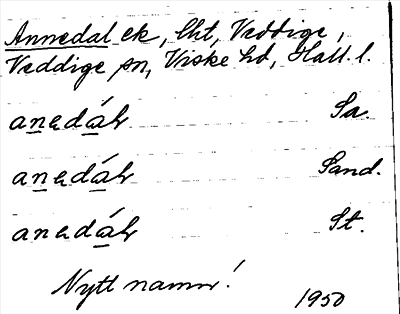 Annedal ek, lht, Veddige,
Veddige sn, Viske hd, Hall. l.
anedál Sa.
anedál Sand.
anedál St.
Nytt namn!
1950